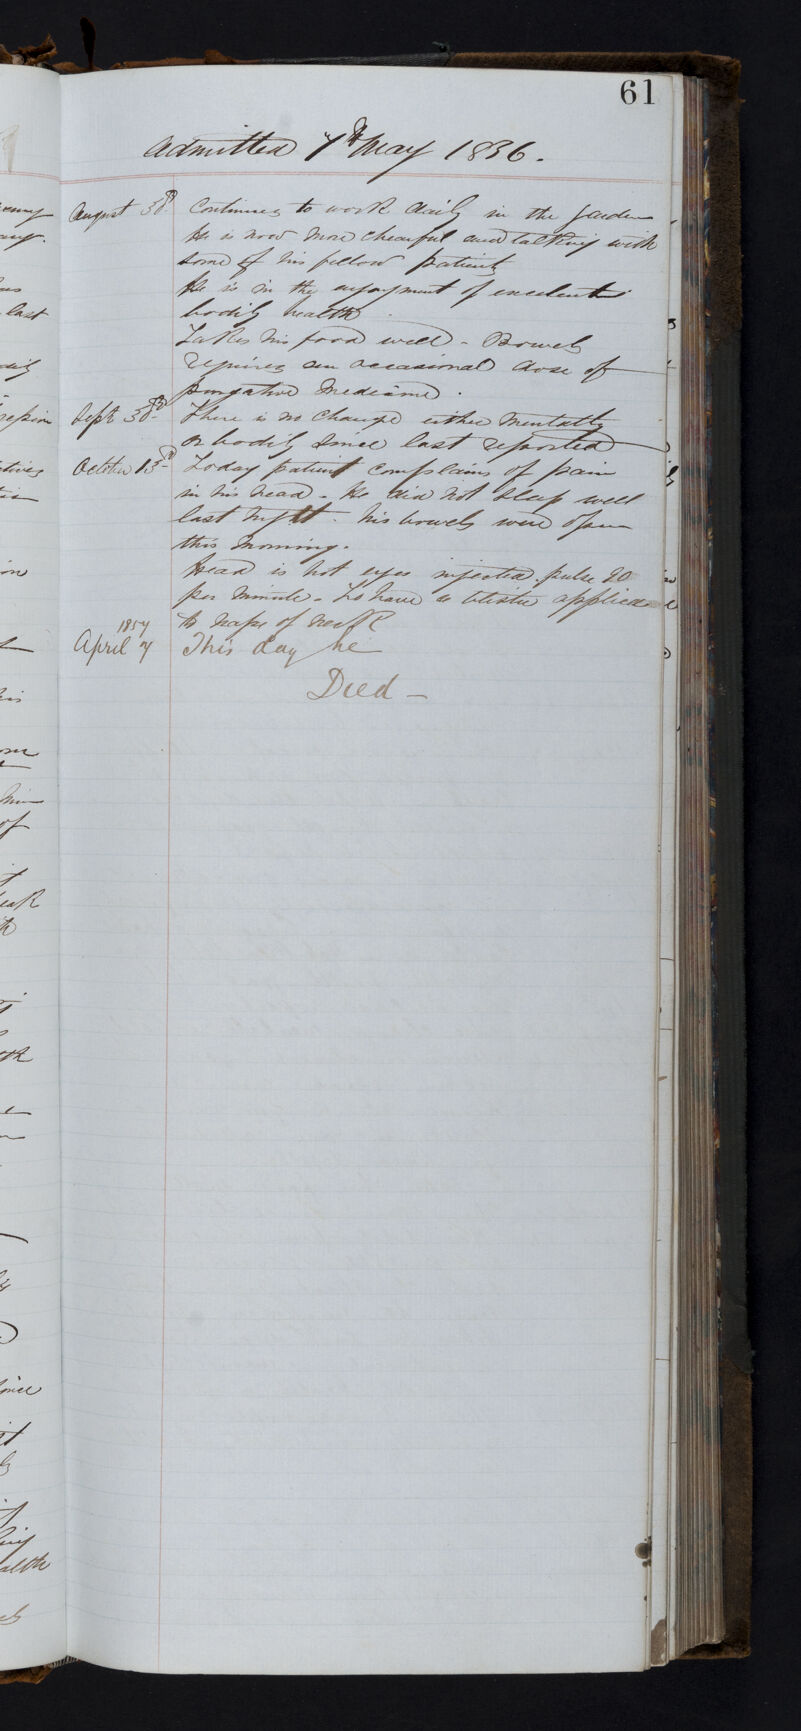 61
Admitted 7th May 1836.
August 30th Continues to work daily in the garden
He is now more chearful and talking with
some of his fellow patients
He is in the enjoyment of excelent
bodily health
Takes his food well - Bowels
requires an occasional dose of
purgative medicine.
Sept 30th There is no change either mentally
or bodily since last reported
October 13th Today patient complains of pain
in his head - He did not sleep well
last night - his bowels were open
this morning.
Head is hot eyes injected pulse
per minute - To have a blister applied
to nape of neck
1857
April 7 This day he
Died -